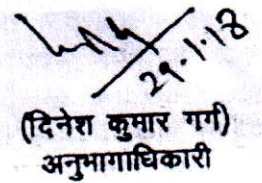 29.1.18
(दिनेश कुमार गर्ग)
अनुभागाधिकारी